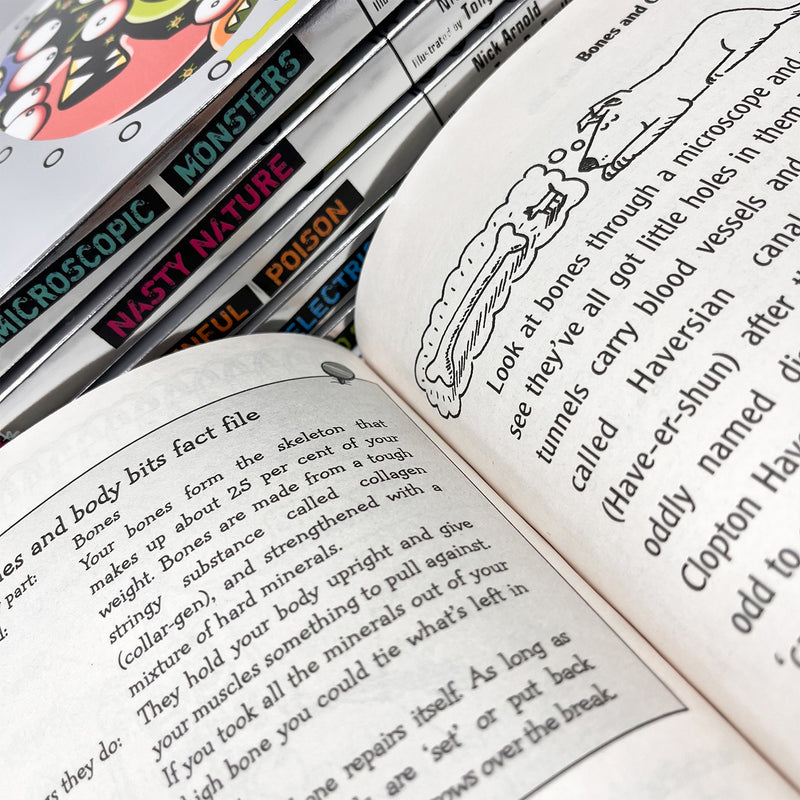 MICROSCOPIC MONSTERS
NASTY NATURE
POISON
Illustrated by Tony
Nick Arnold
Bones and body bits fact file
Bones
Bones form the skeleton that
Your bones
makes up about 25 per cent of your
weight. Bones are made from a tough
stringy substance called collagen
(collar-gen), and strengthened with a
mixture of hard minerals.
They hold your body upright and give
your muscles something to pull against.
If you took all the minerals out of your
bone you could tie what's left in
bone repairs itself. As long as
are 'set' or put back
over the break.
they do:
part:
Bones and
Look at bones through a microscope and
see they've all got little holes in them
tunnels carry blood vessels and
called Haversian canal
(Have-er-shun) after
oddly named
Clopton
odd to